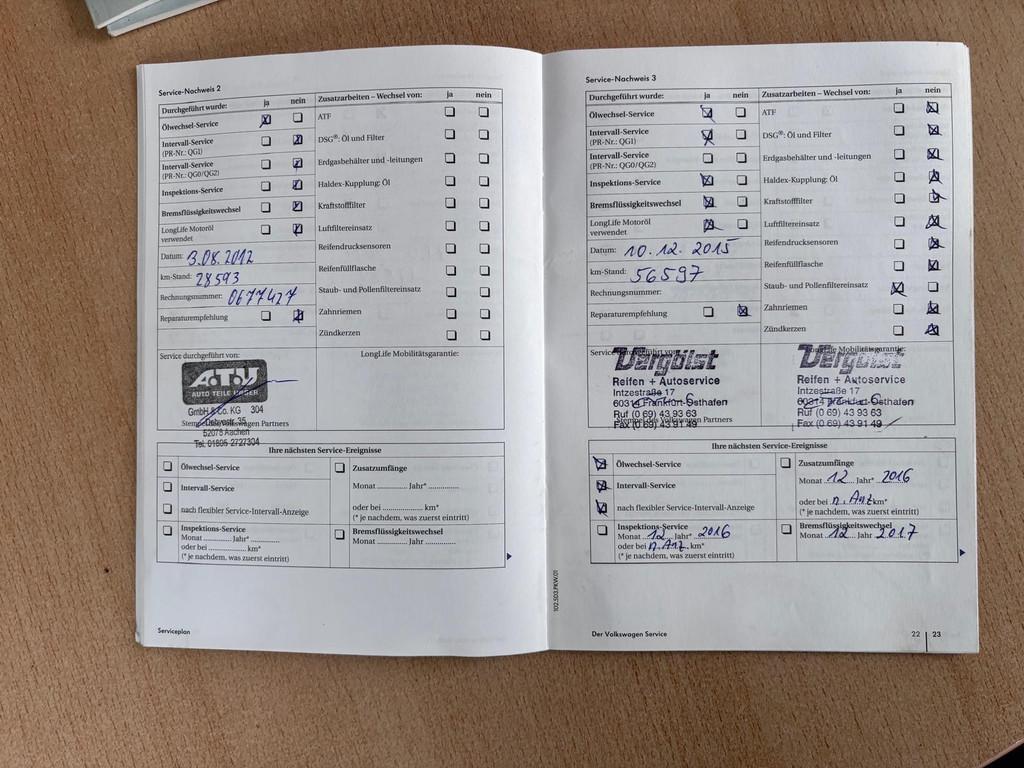 Service-Nachweis 2
Durchgeführt wurde: ja nein
Ölwechsel-Service
Intervall-Service
(PR-Nr.: QG1)
Intervall-Service
(PR-Nr.: QG0/QG2)
Inspektions-Service
Bremsflüssigkeitswechsel
LongLife Motoröl
verwendet
Datum: 3.08.2012
km-Stand: 28593
Rechnungsnummer: 0677427
Reparaturempfehlung
Zusatzarbeiten – Wechsel von: ja nein
ATF
DSG®: Öl und Filter
Erdgasbehälter und -leitungen
Haldex-Kupplung: Öl
Kraftstofffilter
Luftfiltereinsatz
Reifendrucksensoren
Reifenfüllflasche
Staub- und Pollenfiltereinsatz
Zahnriemen
Zündkerzen
Service durchgeführt von:
A.T.U
AUTO TEILE UNGER
GmbH & Co. KG 304
Stempel des Volkswagen Partners
52078 Aachen
Tel. 01805-2727304
LongLife Mobilitätsgarantie:
Ihre nächsten Service-Ereignisse
Ölwechsel-Service
Intervall-Service
nach flexibler Service-Intervall-Anzeige
Inspektions-Service
Monat ............ Jahr* ............
oder bei ............ km*
(* je nachdem, was zuerst eintritt)
Zusatzumfänge
Monat ............ Jahr* ............
oder bei ............ km*
(* je nachdem, was zuerst eintritt)
Bremsflüssigkeitswechsel
Monat ............ Jahr ............
Serviceplan
Service-Nachweis 3
Durchgeführt wurde: ja nein
Ölwechsel-Service
Intervall-Service
(PR-Nr.: QG1)
Intervall-Service
(PR-Nr.: QG0/QG2)
Inspektions-Service
Bremsflüssigkeitswechsel
LongLife Motoröl
verwendet
Datum: 10.12.2015
km-Stand: 56597
Rechnungsnummer:
Reparaturempfehlung
Zusatzarbeiten – Wechsel von: ja nein
ATF
DSG®: Öl und Filter
Erdgasbehälter und -leitungen
Haldex-Kupplung: Öl
Kraftstofffilter
Luftfiltereinsatz
Reifendrucksensoren
Reifenfüllflasche
Staub- und Pollenfiltereinsatz
Zahnriemen
Zündkerzen
Service durchgeführt von:
Vergölst
Reifen + Autoservice
Intzestraße 17
60314 Frankfurt-Osthafen
Ruf (0 69) 43 93 63
Stempel des Volkswagen Partners
Fax (0 69) 43 91 49
LongLife Mobilitätsgarantie:
Vergölst
Reifen + Autoservice
Intzestraße 17
60314 Frankfurt-Osthafen
Ruf (0 69) 43 93 63
Fax (0 69) 43 91 49
Ihre nächsten Service-Ereignisse
Ölwechsel-Service
Intervall-Service
nach flexibler Service-Intervall-Anzeige
Inspektions-Service
Monat 12 Jahr* 2016
oder bei n. Anz. km*
(* je nachdem, was zuerst eintritt)
Zusatzumfänge
Monat 12 Jahr* 2016
oder bei n. Anz km*
(* je nachdem, was zuerst eintritt)
Bremsflüssigkeitswechsel
Monat 12 Jahr 2017
102.5D3.PKW.01
Der Volkswagen Service
22 | 23